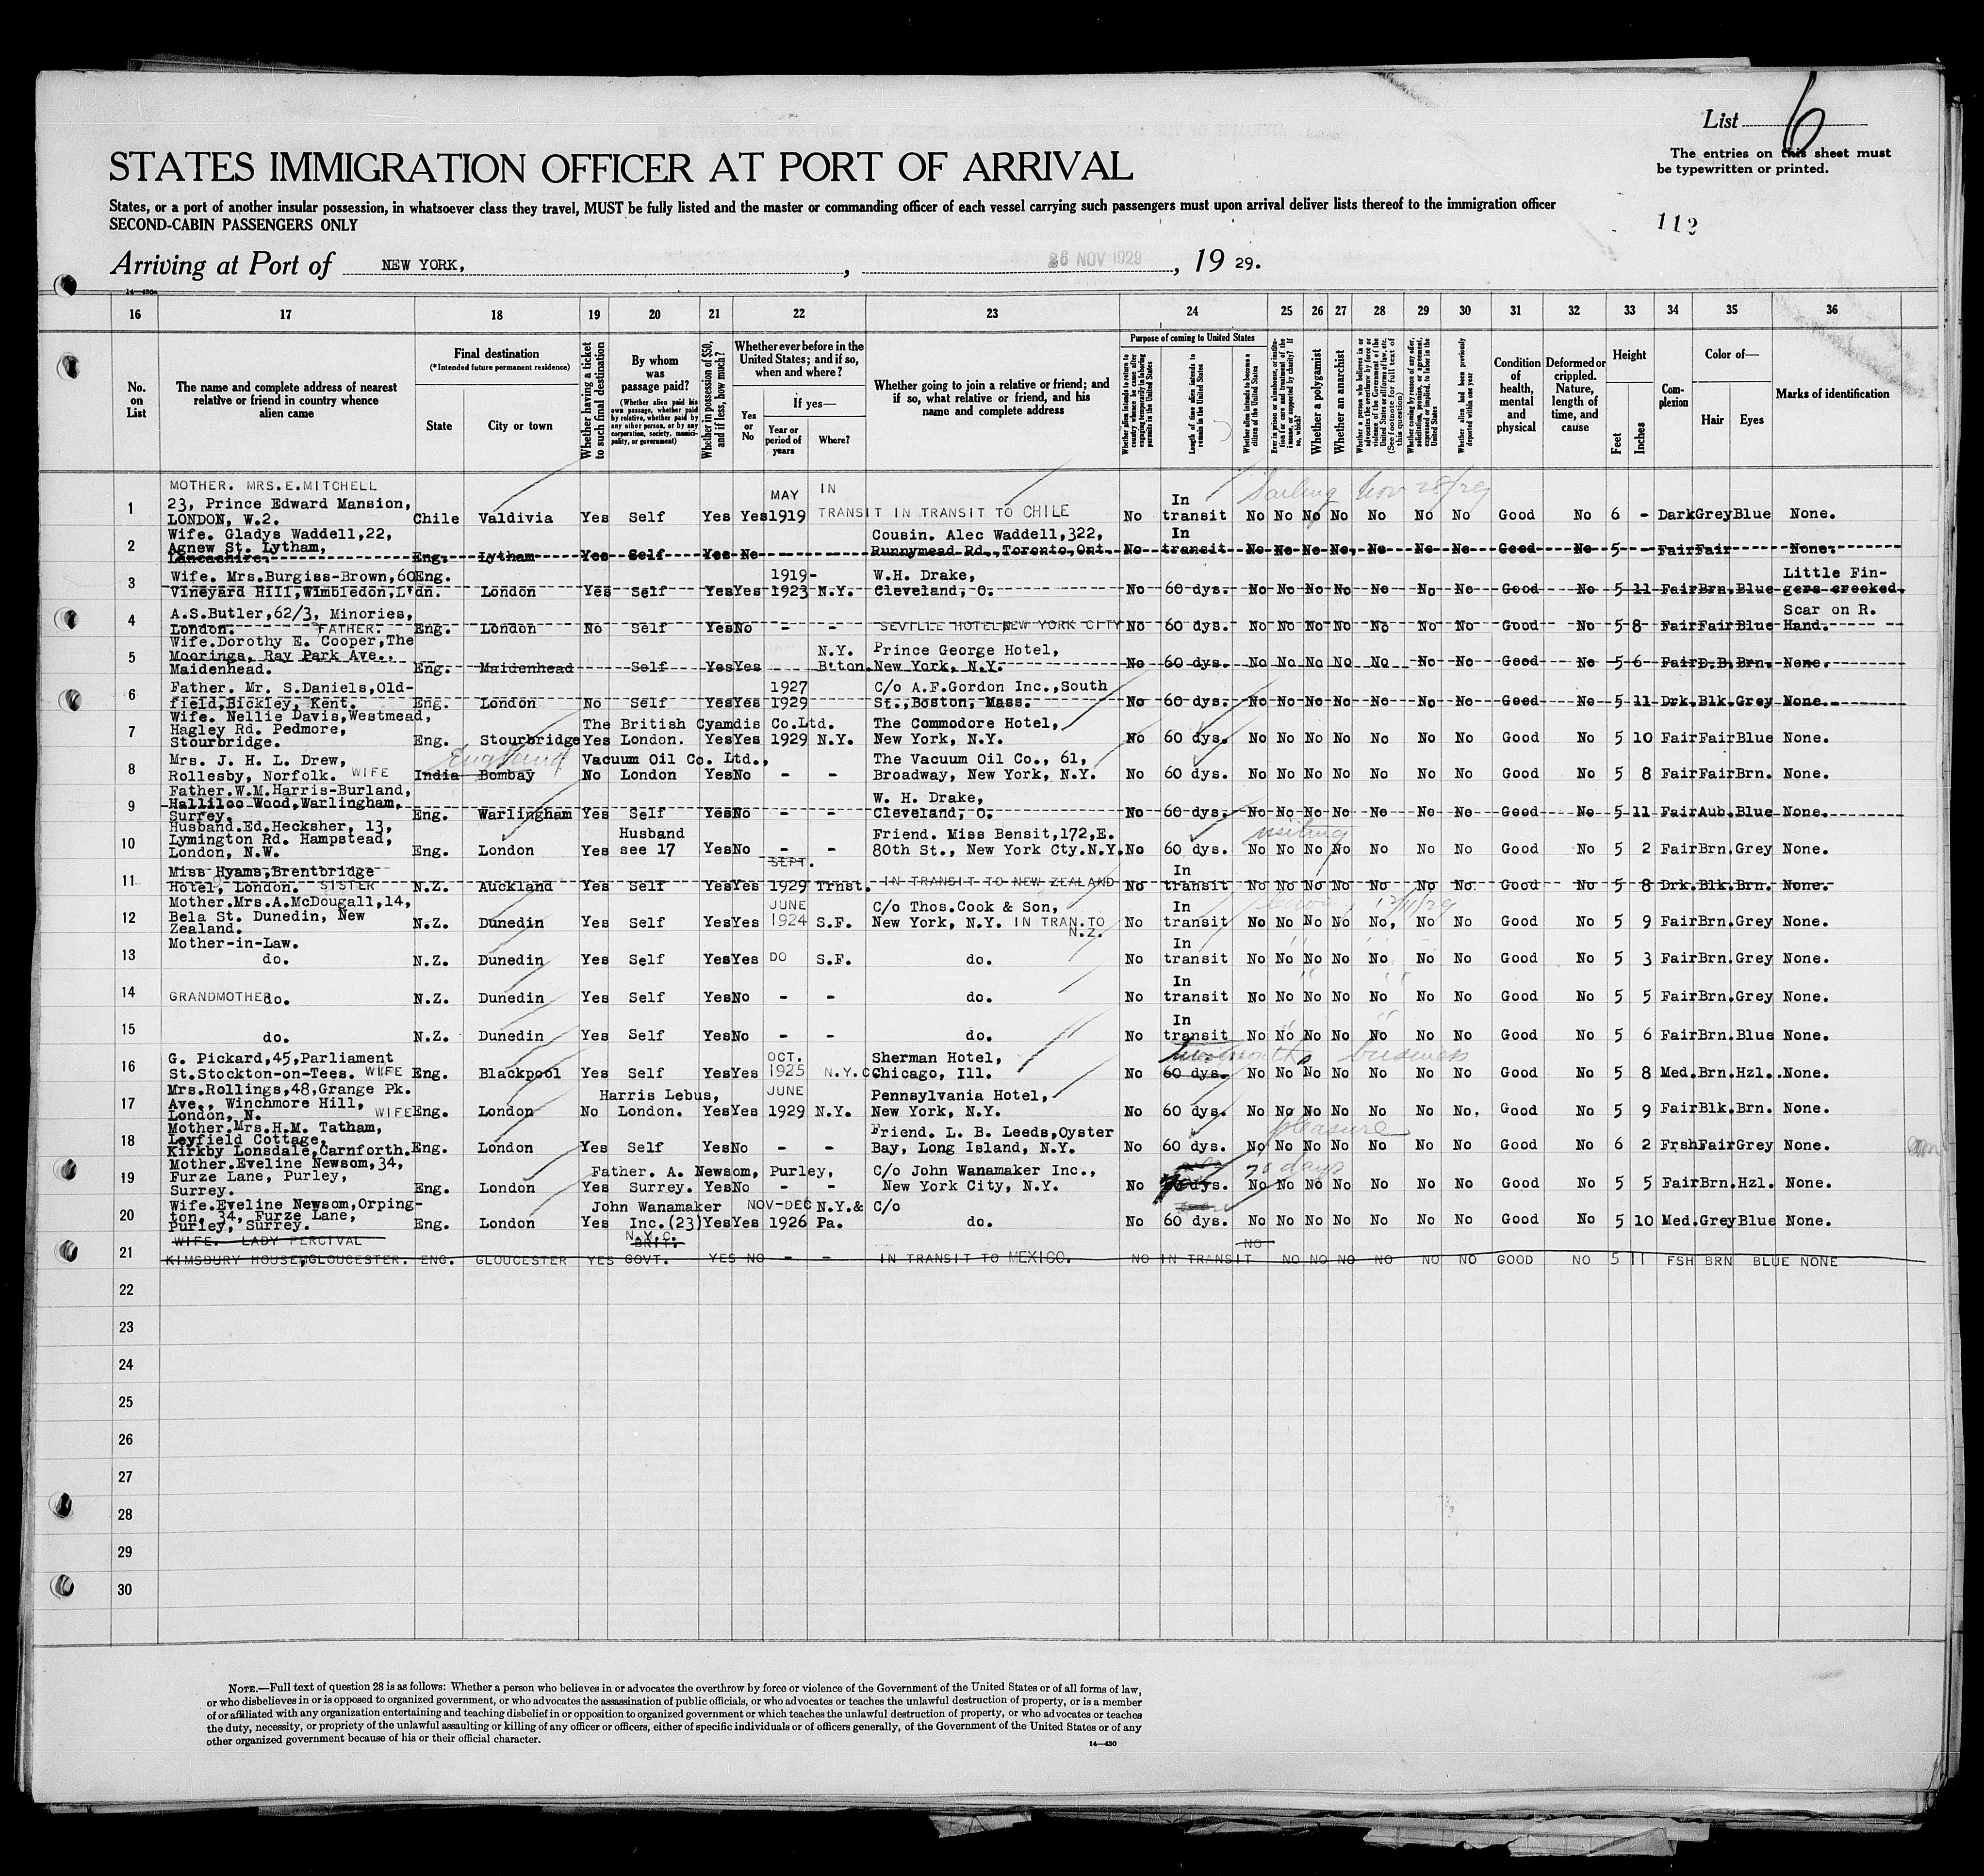 List 6
The entries on this sheet must
be typewritten or printed.
STATES IMMIGRATION OFFICER AT PORT OF ARRIVAL
States, or a port of another insular possession, in whatsoever class they travel, MUST be fully listed and the master or commanding officer of each vessel carrying such passengers must upon arrival deliver lists thereof to the immigration officer
SECOND-CABIN PASSENGERS ONLY
112
Arriving at Port of NEW YORK, , 26 NOV 1929, 19 29.
14-430a
16 17 18 19 20 21 22 23 24 25 26 27 28 29 30 31 32 33 34 35 36
No. on List
The name and complete address of nearest relative or friend in country whence alien came
Final destination
(*Intended future permanent residence)
State City or town
Whether having a ticket to such final destination
By whom was passage paid?
(Whether alien paid his own passage, whether paid by relative, whether paid by any other person, or by any corporation, society, municipality, or government)
Whether in possession of $50, and if less, how much?
Whether ever before in the United States; and if so, when and where?
Yes or No
If yes—
Year or period of years Where?
Whether going to join a relative or friend; and if so, what relative or friend, and his name and complete address
Purpose of coming to United States
Whether alien intends to return to country whence he came after engaging temporarily in laboring pursuits in the United States
Length of time alien intends to remain in the United States
Whether alien intends to become a citizen of the United States
Ever in prison or almshouse, or institution for care and treatment of the insane, or supported by charity? If so, which?
Whether a polygamist
Whether an anarchist
Whether a person who believes in or advocates the overthrow by force or violence of the Government of the United States or all forms of law, etc. (See footnote for full text of this question)
Whether coming by reason of any offer, solicitation, promise, or agreement, expressed or implied, to labor in the United States
Whether alien had been previously deported within one year
Condition of health, mental and physical
Deformed or crippled. Nature, length of time, and cause
Height
Feet Inches
Complexion
Color of—
Hair Eyes
Marks of identification
MOTHER. MRS.E.MITCHELL MAY IN In Sailing Nov 28/29
1 23, Prince Edward Mansion,
LONDON, W.2. Chile Valdivia Yes Self Yes Yes 1919 TRANSIT IN TRANSIT TO CHILE No transit No No No No No No No Good No 6 - Dark Grey Blue None.
Wife. Gladys Waddell,22, Cousin. Alec Waddell,322, In
2 Agnew St. Lytham,
Lancashire. Eng. Lytham Yes Self Yes No - - Runnymead Rd., Toronto, Ont. No transit No No No No No No No Good No 5 - Fair Fair None.
3 Wife. Mrs.Burgiss-Brown,60 Eng. 1919- W.H. Drake, Little Fin-
Vineyard Hill,Wimbledon,L'dn. London Yes Self Yes Yes 1923 N.Y. Cleveland, O. No 60 dys. No No No No No No No Good No 5 11 Fair Brn. Blue gers crooked.
4 A.S.Butler,62/3, Minories, Scar on R.
London. FATHER. Eng. London No Self Yes No - - SEVILLE HOTEL, NEW YORK CITY No 60 dys. No No No No No No No Good No 5 8 Fair Fair Blue Hand.
Wife.Dorothy E. Cooper,The N.Y. Prince George Hotel,
5 Moorings, Ray Park Ave.,
Maidenhead. Eng. Maidenhead Self Yes Yes B'ton. New York, N.Y. No 60 dys. No No No No No No No Good No 5 6 Fair D.B. Brn. None.
6 Father. Mr. S.Daniels,Old- 1927 C/o A.F.Gordon Inc.,South
field,Bickley, Kent. Eng. London No Self Yes Yes 1929 St.,Boston, Mass. No 60 dys. No No No No No No No Good No 5 11 Drk. Blk. Grey None.
Wife. Nellie Davis,Westmead, The British Cyamdis Co.Ltd. The Commodore Hotel,
7 Hagley Rd. Pedmore,
Stourbridge. Eng. Stourbridge Yes London. Yes Yes 1929 N.Y. New York, N.Y. No 60 dys. No No No No No No No Good No 5 10 Fair Fair Blue None.
8 Mrs. J. H. L. Drew, England Vacuum Oil Co. Ltd., The Vacuum Oil Co., 61,
Rollesby, Norfolk. WIFE India Bombay No London Yes No - - Broadway, New York, N.Y. No 60 dys. No No No No No No No Good No 5 8 Fair Fair Brn. None.
Father.W.M.Harris-Burland, W. H. Drake,
9 Halliloo Wood,Warlingham,
Surrey. Eng. Warlingham Yes Self Yes No - - Cleveland, O. No 60 dys. No No No No No No No Good No 5 11 Fair Aub. Blue None.
Husband.Ed.Hecksher, 13, Husband Friend. Miss Bensit,172,E. visiting
10 Lymington Rd. Hampstead,
London, N.W. Eng. London Yes see 17 Yes No - - 80th St., New York Cty.N.Y. No 60 dys. No No No No No No No Good No 5 2 Fair Brn. Grey None.
11 Miss Hyams,Brentbridge SEPT. In
Hotel, London. SISTER N.Z. Auckland Yes Self Yes Yes 1929 Trnst. IN TRANSIT TO NEW ZEALAND No transit No No No No No No No. Good No 5 8 Drk. Blk. Brn. None.
Mother.Mrs.A.McDougall,14, JUNE C/o Thos.Cook & Son, In
12 Bela St. Dunedin, New
Zealand. N.Z. Dunedin Yes Self Yes Yes 1924 S.F. New York, N.Y. IN TRAN.TO N.Z. No transit No No No No No, No No Good No 5 9 Fair Brn. Grey None.
13 Mother-in-Law. In
do. N.Z. Dunedin Yes Self Yes Yes DO S.F. do. No transit No No No No No No No Good No 5 3 Fair Brn. Grey None.
14 GRANDMOTHER do. N.Z. Dunedin Yes Self Yes No - - do. No In transit No No No No No No No Good No 5 5 Fair Brn. Grey None.
15 do. N.Z. Dunedin Yes Self Yes No - - do. No In transit No No No No No No No Good No 5 6 Fair Brn. Blue None.
16 G. Pickard,45,Parliament OCT. Sherman Hotel, months business
St.Stockton-on-Tees. WIFE Eng. Blackpool Yes Self Yes Yes 1925 N.Y.C. Chicago, Ill. No 60 dys. No No No No No No No Good No 5 8 Med. Brn. Hzl. None.
Mrs.Rollings,48,Grange Pk. Harris Lebus, JUNE Pennsylvania Hotel,
17 Ave., Winchmore Hill,
London, N. WIFE Eng. London No London. Yes Yes 1929 N.Y. New York, N.Y. No 60 dys. No No No No No No No. Good No 5 9 Fair Blk. Brn. None.
Mother.Mrs.H.M. Tatham, Friend. L. B. Leeds,Oyster pleasure
18 Leyfield Cottage,
Kirkby Lonsdale,Carnforth. Eng. London Yes Self Yes No - - Bay, Long Island, N.Y. No 60 dys. No No No No No No No Good No 6 2 Frsh Fair Grey None.
Mother.Eveline Newsom,34, Father. A. Newsom, Purley, C/o John Wanamaker Inc., days
19 Furze Lane, Purley,
Surrey. Eng. London Yes Surrey. Yes No - - New York City, N.Y. No 60 dys. No No No No No No No Good No 5 5 Fair Brn. Hzl. None.
Wife.Eveline Newsom,Orping- John Wanamaker NOV-DEC N.Y.& C/o
20 ton, 34, Furze Lane,
Purley, Surrey. Eng. London Yes Inc.(23) Yes Yes 1926 Pa. do. No 60 dys. No No No No No No No Good No 5 10 Med. Grey Blue None.
N.Y.C.
WIFE. LADY PERCIVAL BRIT. NO
21 KIMSBURY HOUSE, GLOUCESTER. ENG. GLOUCESTER YES GOVT. YES NO - - IN TRANSIT TO MEXICO. NO IN TRANSIT NO NO NO NO NO NO GOOD NO 5 11 FSH BRN BLUE NONE
22
23
24
25
26
27
28
29
30
NOTE.—Full text of question 28 is as follows: Whether a person who believes in or advocates the overthrow by force or violence of the Government of the United States or of all forms of law,
or who disbelieves in or is opposed to organized government, or who advocates the assassination of public officials, or who advocates or teaches the unlawful destruction of property, or is a member
of or affiliated with any organization entertaining and teaching disbelief in or opposition to organized government or which teaches the unlawful destruction of property, or who advocates or teaches
the duty, necessity, or propriety of the unlawful assaulting or killing of any officer or officers, either of specific individuals or of officers generally, of the Government of the United States or of any
other organized government because of his or their official character.
14—430